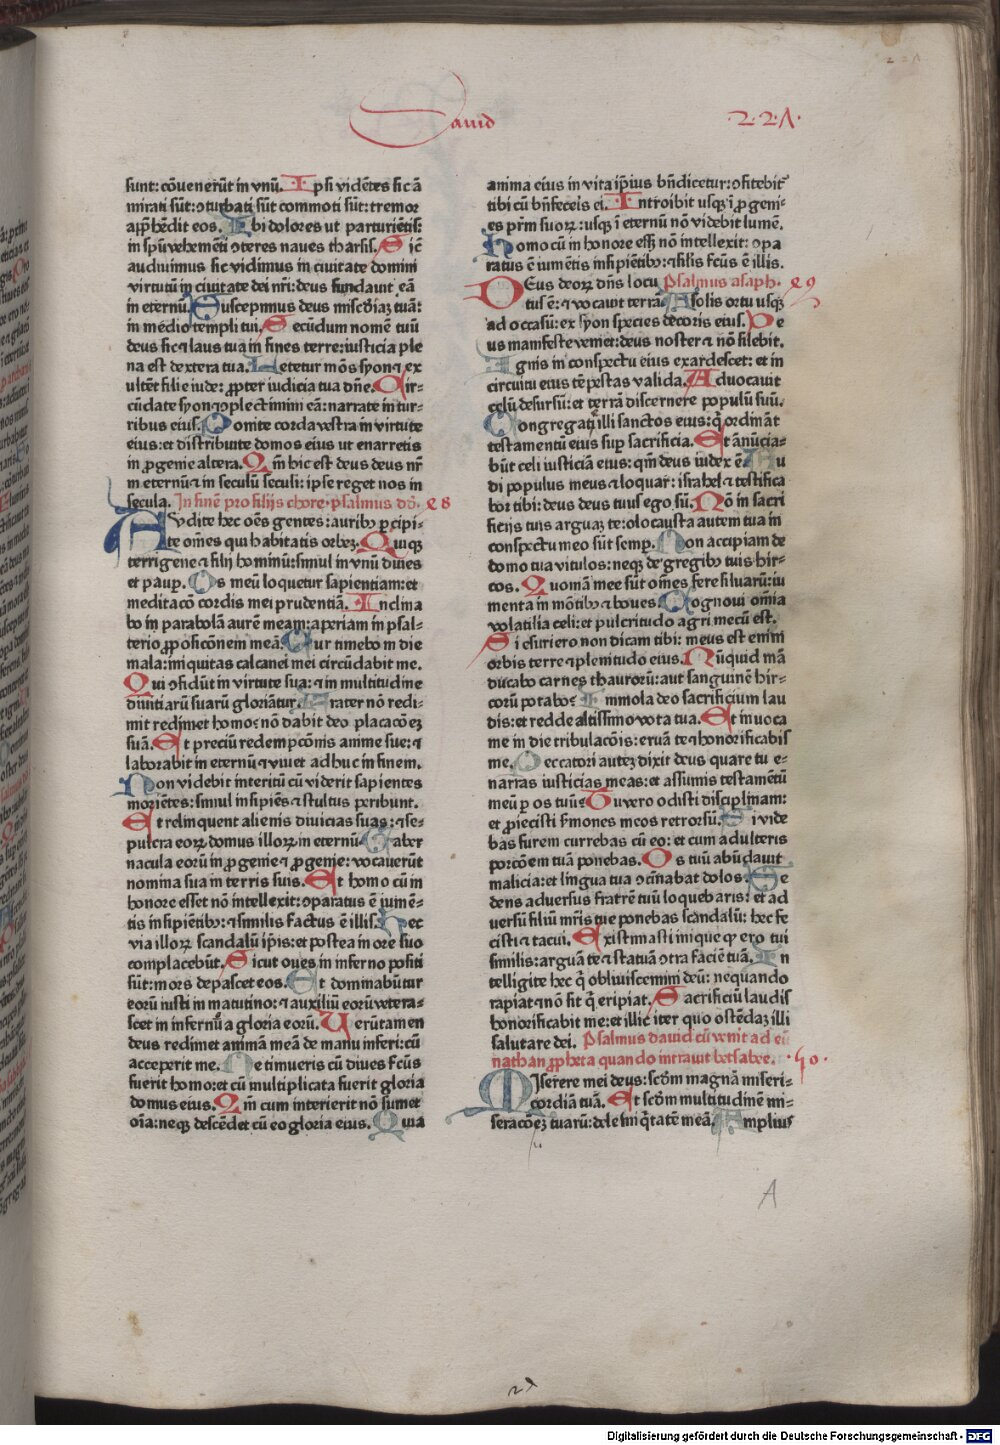 Dauid
.2.2.Λ.
sunt: cōuenerūt in vnū. Ipsi vidētes sic ā
mirati sūt: ꝯturbati sūt commoti sūt: tremor
app̄hēdit eos. Ibi dolores ut parturiētis:
in spū vehemēti ꝯteres naues tharsis. Sicē
audiuimus sic vidimus in ciuitate domini
virtutū in ciuitate dei nr̄i: deus fundauit eā
in eternū. Suscepimus deus mīscd̓iaꝫ tuā:
in medio templi tui. Secūdum nomē tuū
deus sic ⁊ laus tua in fines terre: iusticia ple
na est dextera tua. Letetur mōs syon ⁊ ex
ultēt filie iude: ꝓpter iudicia tua dn̄e. Cir-
cūdate syon ⁊ ꝯplectimini eā: narrate in tur-
ribus eius. Ponite corda vestra in virtute
eius: et distribuite domos eius ut enarretis
in ꝓgenie altera. Qm̄ hic est deus deus nr̄
in eternū ⁊ in seculū seculi: ipse reget nos in
secula. In finē pro filijs chore psalmus dd̄. 28
Audite hec om̄s gentes: auribꝰ ꝑcipi-
te om̄es qui habitatis orbeꝫ. Quiqꝫ
terrigene ⁊ filij hominū: simul in vnū diues
et pauꝑ. Os meū loquetur sapientiam: et
meditacō cordis mei prudentiā. Inclina
bo in parabolā aurē meam: aperiam in psal-
terio ꝓposicōnem meā. Cur timebo in die
mala: iniquitas calcanei mei circūdabit me.
Qui ꝯfidūt in virtute sua: ⁊ in multitudine
diuitiarū suarū gloriātur. Frater nō redi-
mit redimet homo: nō dabit deo placacōeꝫ
suā. Et preciū redempcōnis anime sue: ⁊
laborabit in eternū ⁊ viuet adhuc in finem.
Non videbit interitū cū viderit sapientes
moriētes: simul insipiēs ⁊ stultus peribunt.
Et relinquent alienis diuicias suas: ⁊ se-
pulcra eoꝝ domus illoꝝ in eternū. Taber
nacula eorū in ꝓgenie ⁊ ꝓgenie: vocauerūt
nomina sua in terris suis. Et homo cū in
honore esset nō intellexit: ꝯparatus ē iumē-
tis insipiētibꝰ: ⁊ similis factus ē illis. Hec
via illoꝝ scandalū ip̄is: et postea in ore suo
complacebūt. Sicut oues in inferno positi
sūt: mors depascet eos. Et dominabūtur
eorū iusti in matutino: ⁊ auxiliū eorū vetera-
scet in infernū a gloria eorū. Uerūtamen
deus redimet animā meā de manu inferi: cū
acceperit me. Ne timueris cū diues fc̄us
fuerit homo: et cū multiplicata fuerit gloria
domus eius. Qm̄ cum interierit nō sumet
oīa: neqꝫ descēdet cū eo gloria eius. Quia
anima eius in vita ip̄ius bn̄dicetur: ꝯfitebit̓
tibi cū bn̄feceis ei. Introibit usqꝫ ī ꝓgeni-
es pr̄m suoꝝ: usqꝫ ī eternū nō videbit lumē.
Homo cū in honore esꝫ nō intellexit: ꝯpa
ratus ē iumētis insipiētibꝰ: ⁊ similis fc̄us ē illis.
Deus deoꝝ dn̄s locu Psalmus asaph. 29
tus ē: ⁊ vocauit terrā. A solis ortu usqꝫ
ad occasū: ex syon species decoris eius. De
us manifeste veniet: deus noster ⁊ nō silebit.
Ignis in conspectu eius exardescet: et in
circuitu eius tēpestas valida. Aduocauit
celū desursū: et terrā discernere populū suū.
Congregate illi sanctos eius: q̄ ordināt
testamentū eius suꝑ sacrificia. Et ānūcia-
būt celi iusticiā eius: qm̄ deus iudex ē. Au
di populus meus ⁊ loquar: israhel ⁊ testifica
bor tibi: deus deus tuus ego sū. Nō in sacri
ficijs tuis arguaꝫ te: olocausta autem tua in
conspectu meo sūt semꝑ. Non accipiam de
domo tua vitulos: neqꝫ de gregibꝰ tuis hir-
cos. Quoniā mee sūt om̄es fere siluarū: iu
menta in mōtibꝰ ⁊ boues. Cognoui om̄ia
volatilia celi: et pulcritudo agri mecū est.
Si esuriero non dicam tibi: meus est enim
orbis terre ⁊ plenitudo eius. Nūquid mā
ducabo carnes thaurorū: aut sanguinē hir-
corū potabo? Immola deo sacrificium lau
dis: et redde altissimo vota tua. Et inuoca
me in die tribulacōis: eruā te ⁊ honorificabis
me. Peccatori auteꝫ dixit deus quare tu e-
narras iusticias meas: et assumis testamētū
meū ꝑ os tuū? Tu vero odisti disciplinam:
et ꝓiecisti sꝰmones meos retrorsū. Si vide
bas furem currebas cū eo: et cum adulteris
porcōem tuā ponebas. Os tuū abūdauit
malicia: et lingua tua ꝯcīnabat dolos. Se
dens aduersus fratrē tuū loquebaris: et ad
uersū filiū mr̄is tue ponebas scandalū: hec fe
cisti ⁊ tacui. Existimasti inique ꝙ ero tui
similis: arguā te ⁊ statuā ꝯtra faciē tuā. In
telligite hec q̄ obliuiscimini deū: nequando
rapiat ⁊ nō sit q̄ eripiat. Sacrificiū laudis
honorificabit me: et illic iter quo ostēdaꝫ illi
salutare dei. Psalmus dauid cū venit ad eū
nathan ꝓpheta quando intrauit betsabee. .50.
Miserere mei deus: scd̄m magnā miseri-
cordiā tuā. Et scd̄m multitudinē mi-
seracōeꝫ tuarū: dele īniq̄tatē meā. Amplius
A
Digitalisierung gefördert durch die Deutsche Forschungsgemeinschaft - DFG